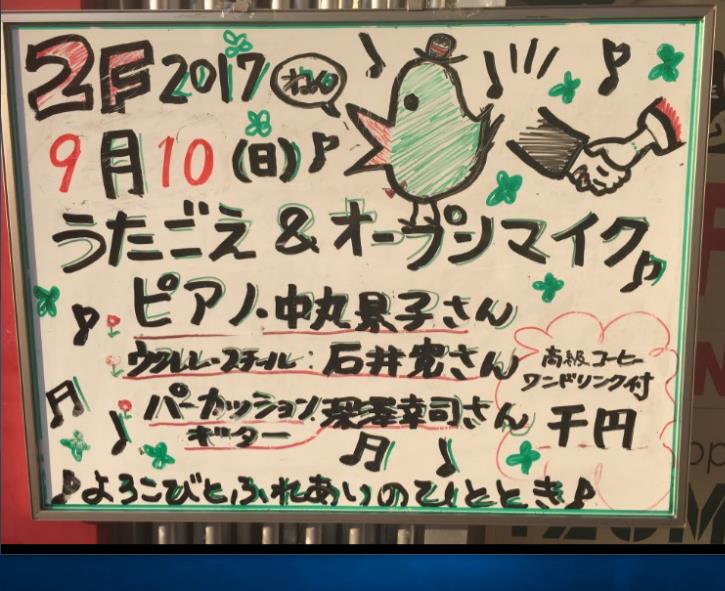 2F 2017
9月10(日)
うたごえ&オープンマイク
ピアノ・中丸景子さん
ウクレレ・スチール:石井寛さん
パーカッション・深澤幸司さん
ギター
高級コーヒー
ワンドリンク付
千円
よろこびとふれあいのひととき